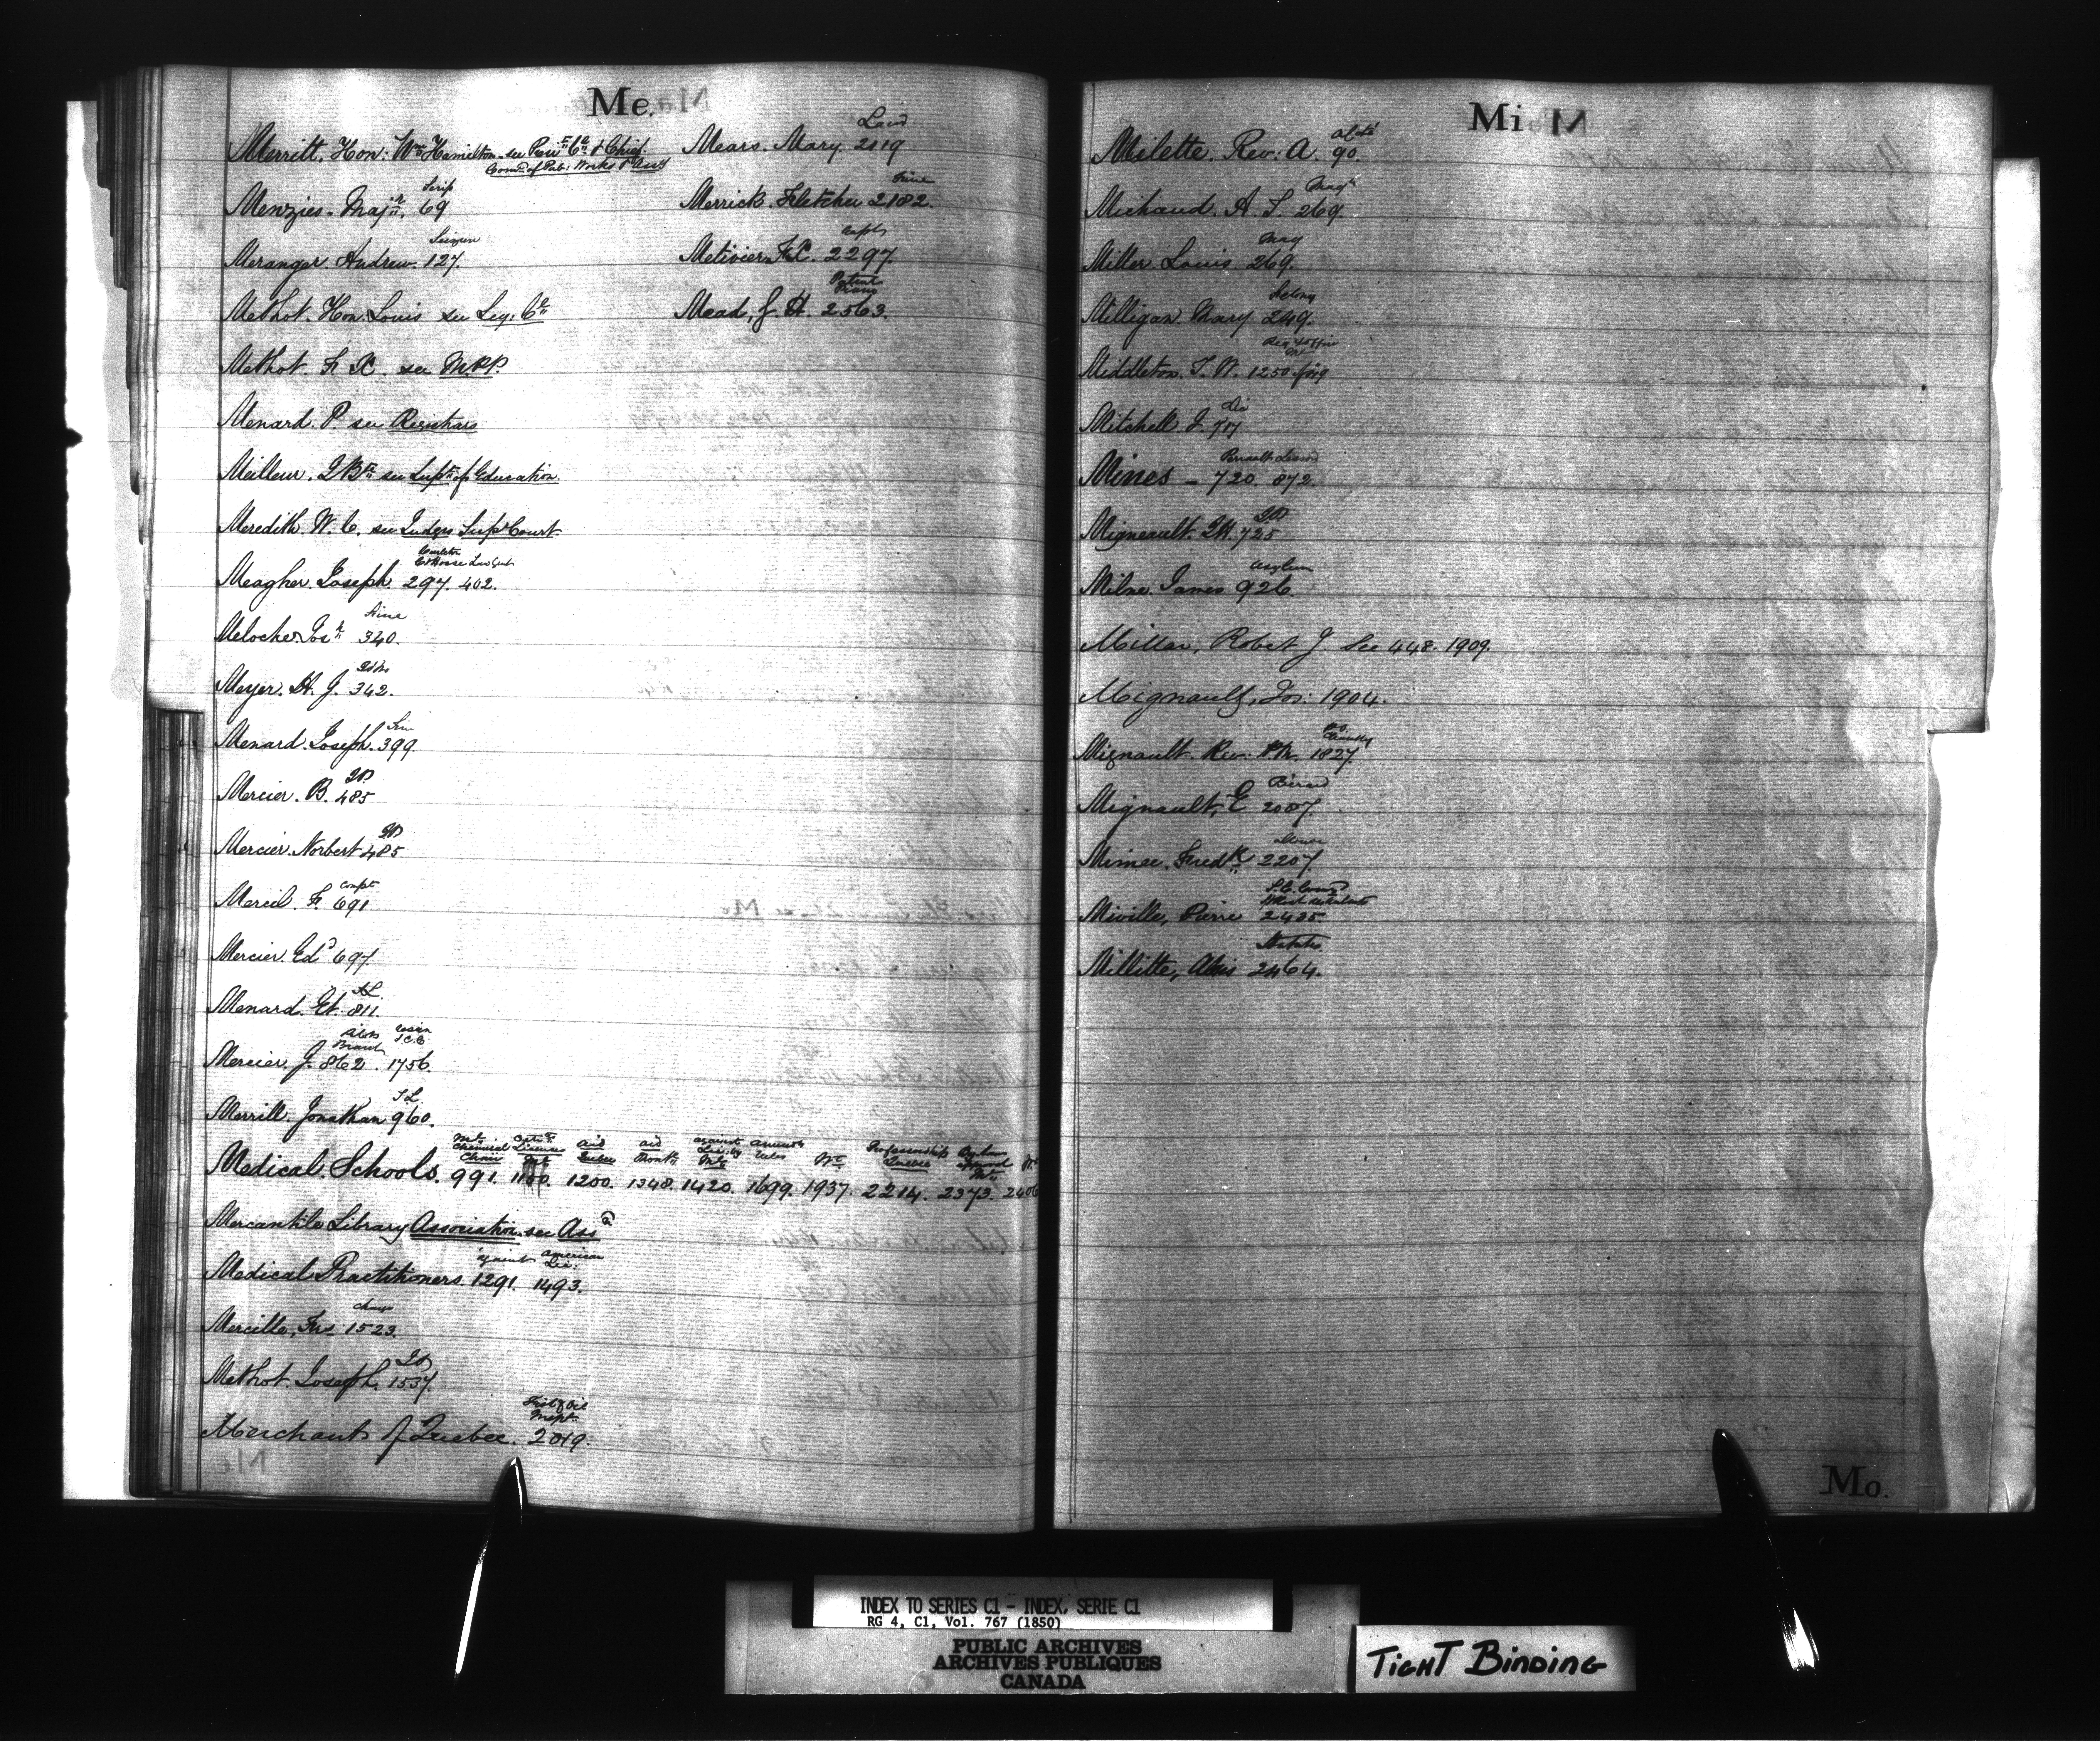 Me.
Merritt. Hon: Wm Hamilton see & Chief
Comr of Pub: Works &
Scrip
Menzies. Majr 69
Meranger. Andrew. 127.
Methot. Hon: Louis see Leg: Cl
Methot. F X. see M.P.P.
Menard. P see Registrars
Meilleur. J Bte see Supt of Education.
Meredith. W. C. see Judges Supr Court.
Meagher. Joseph. 297. 402.
Meloche Josh 340.
Meyer. H. J. 342.
Menard. Joseph. 399.
J.P.
Mercier. B. 485
J.P.
Mercier. Norbert 485
Compt
Merciel. F. 691
Mercier. Ed 697
Menard. Et. 811.
Mercier. J. 862. 1756.
Merrill. Jonathan 960.
Chemical License aid aid against
Chair Quebec Quebec
Medical Schools. 991. 1150. 1200. 1348. 1420. 1699. 1937. 2214. 2373. 2406
Mercantile Library Association see Assn
against American
Medical Practitioners. 1291. 1493.
Mercille, Frs 1523.
Methot. Joseph. 1537.
Fish & Oil
Inspr
Merchants of Quebec. 2019.
Land
Mears. Mary. 2019
Merrick. Fletcher 2182.
Metivier F.X. 2297.
Patent
Piano
Mead, J. H. 2563.
Mi
Milette. Rev: A. 90.
Magt
Michaud. A. S. 269.
Mag
Miller. Louis. 269.
Felony
Milligan. Mary 249.
Middleton. T. W. 1250.
Mitchell. J. 717
Mines - 720. 872
Migneault. 725
Asylum
Milne. James 926.
Millar, Robert J See 448. 1909.
Mignault, Jos: 1904.
Mignault. Rev: 1827.
Mignault, E 2087.
Mimee. Fredk 2207.
Miville, Pierre 2435.
Millette, 2464.
Mo.
INDEX TO SERIES C1 - INDEX, SERIE C1
RG 4, C1, Vol. 767 (1850)
PUBLIC ARCHIVES
ARCHIVES PUBLIQUES
CANADA
TIGHT BINDING